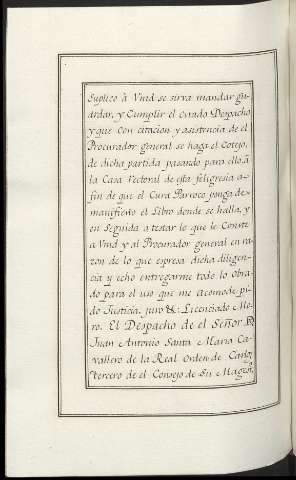 Suplico à Vmd se sirva mandar gu-
ardar, y Cumplir el citado Despacho,
y que con citacion y asistencia de el
Procurador general se haga el Cotejo,
de dicha partida pasando para ello à
la Casa Rectoral de esta feligresia a-
fin de que el Cura Parroco ponga de-
manifiesto el Libro donde se halla, y
en Seguida atestar lo que le Conste
a Vmd y al Procurador general en ra-
zon de lo que espresa dicha diligen-
cia y echo entregarme todo lo obra-
do para el uso que me acomode, pi-
do Justicia, juro &: Licenciado Mo-
ro. El Despacho de el Señor Dn
Juan Antonio Santa Maria Ca-
vallero de la Real Orden de Carlos
tercero de el Consejo de Su Magd,